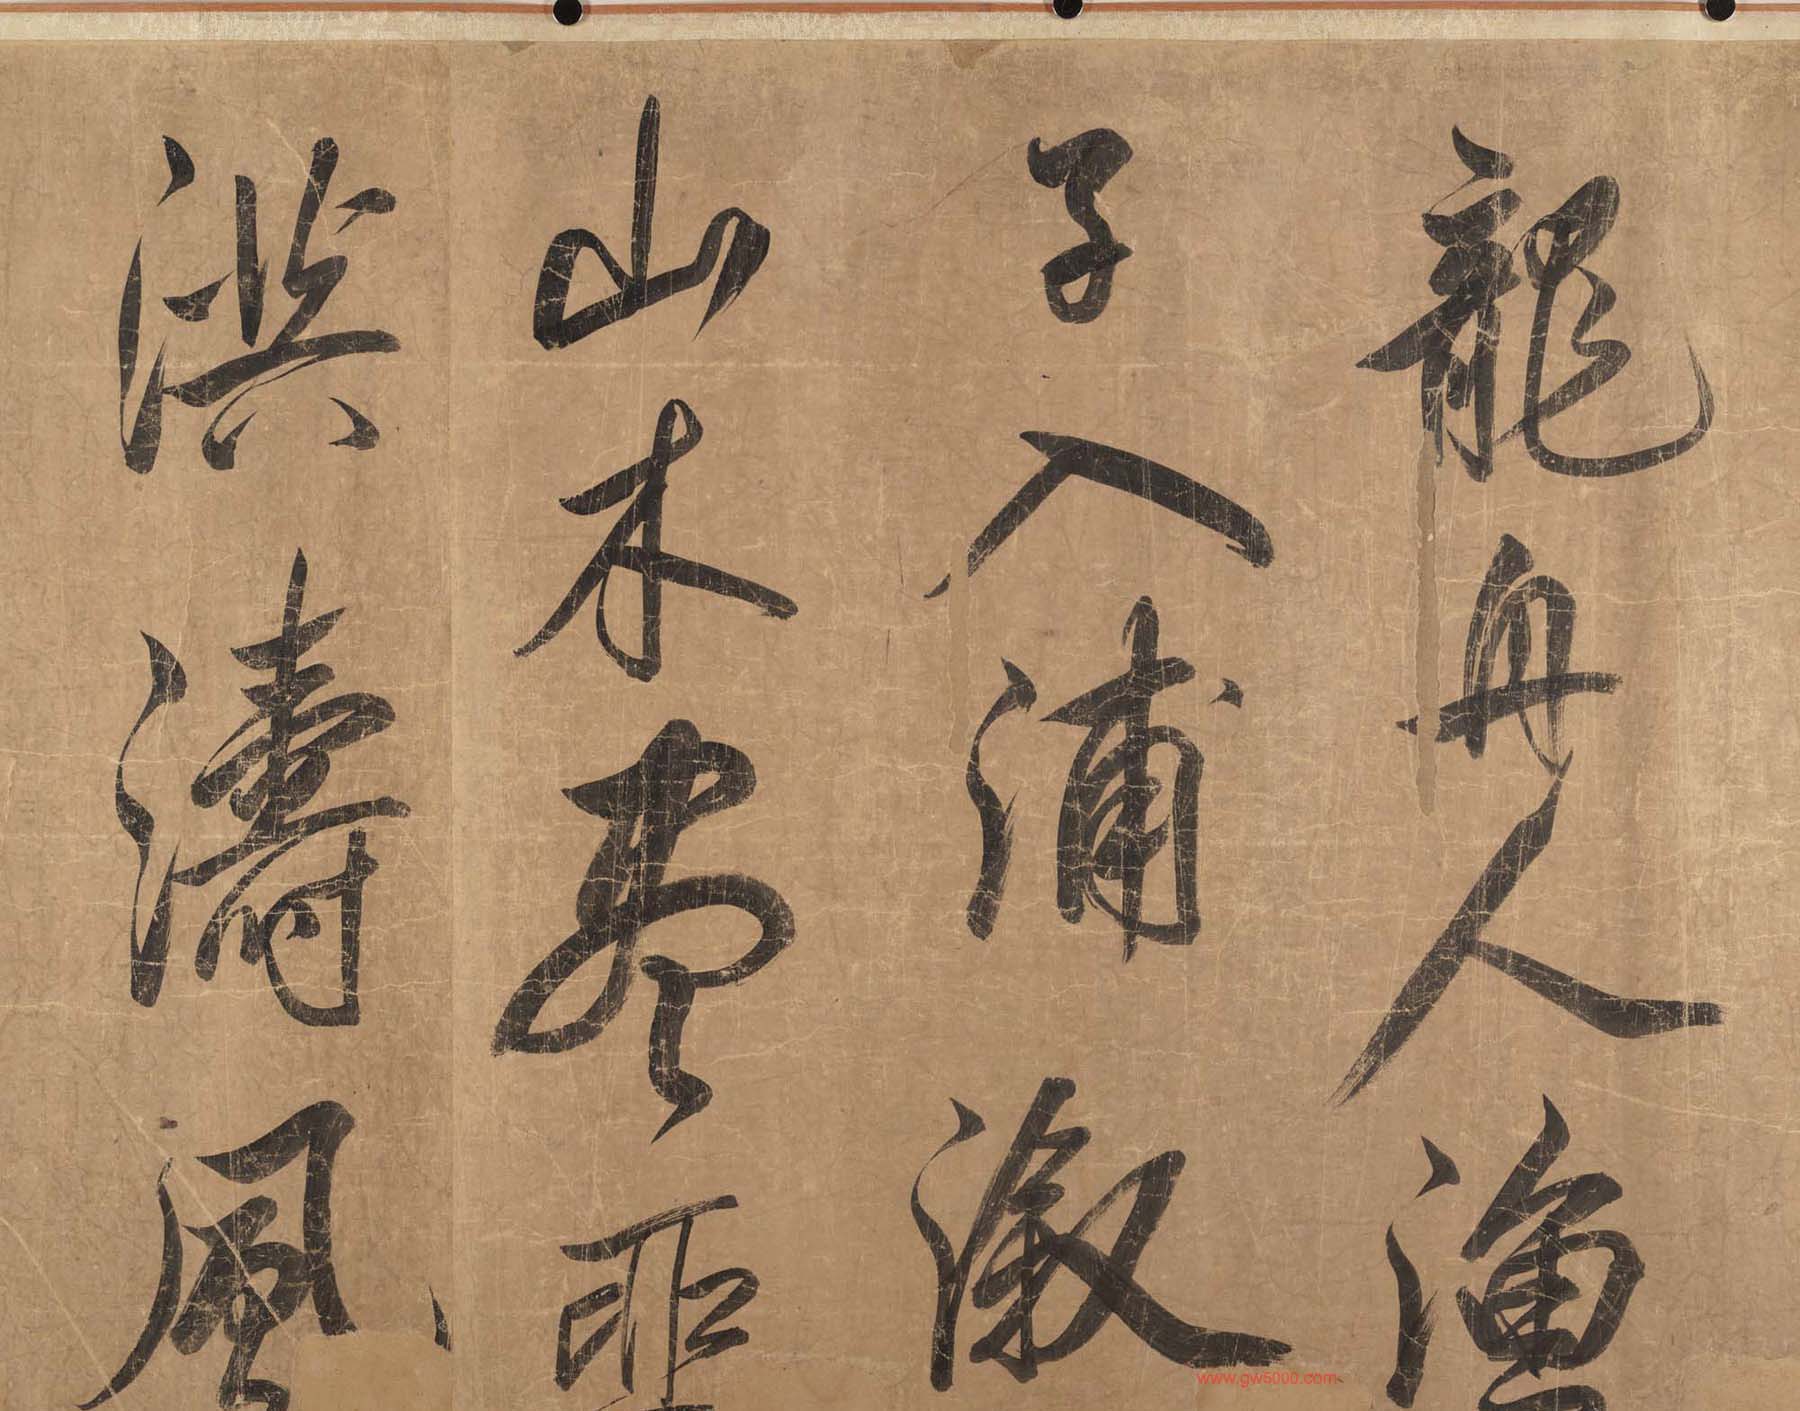 龍舟人漁
子入浦溆
山木盡亞
洪濤風
www.gw5000.com